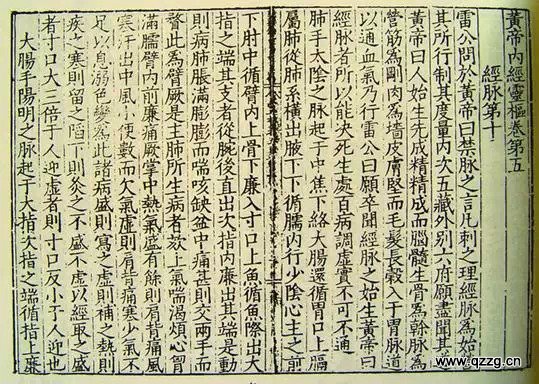 黃帝內經靈樞卷第五
經脉第十
雷公問於黃帝曰禁脉之言凡刺之理經脉為始
其所行制其度量內次五藏外別六府願盡聞其
黃帝曰人始生先成精精成而腦髓生骨為幹脉為
營筋為剛肉為墻皮膚堅而毛髮長穀入于胃脉道
以通血氣乃行雷公曰願卒聞經脉之始生黃帝曰
經脉者所以能决死生處百病調虛實不可不通
肺手太陰之脉起于中焦下絡大腸還循胃口上膈
屬肺從肺系橫出腋下下循臑內行少陰心主之前
下肘中循臂內上骨下廉入寸口上魚循魚際出大
指之端其支者從腕後直出次指內廉出其端是動
則病肺脹滿膨膨而喘咳缺盆中痛甚則交兩手而
瞀此為臂厥是主肺所生病者欬上氣喘渴煩心胷
滿臑臂內前廉痛厥掌中熱氣盛有餘則肩背痛風
寒汗出中風小便數而欠氣虛則肩背痛寒少氣不
足以息溺色變為此諸病盛則寫之虛則補之熱則
疾之寒則留之陷下則灸之不盛不虛以經取之盛
者寸口大三倍于人迎虛者則寸口反小于人迎也
大腸手陽明之脉起于大指次指之端循指上廉
www.qzzg.cn